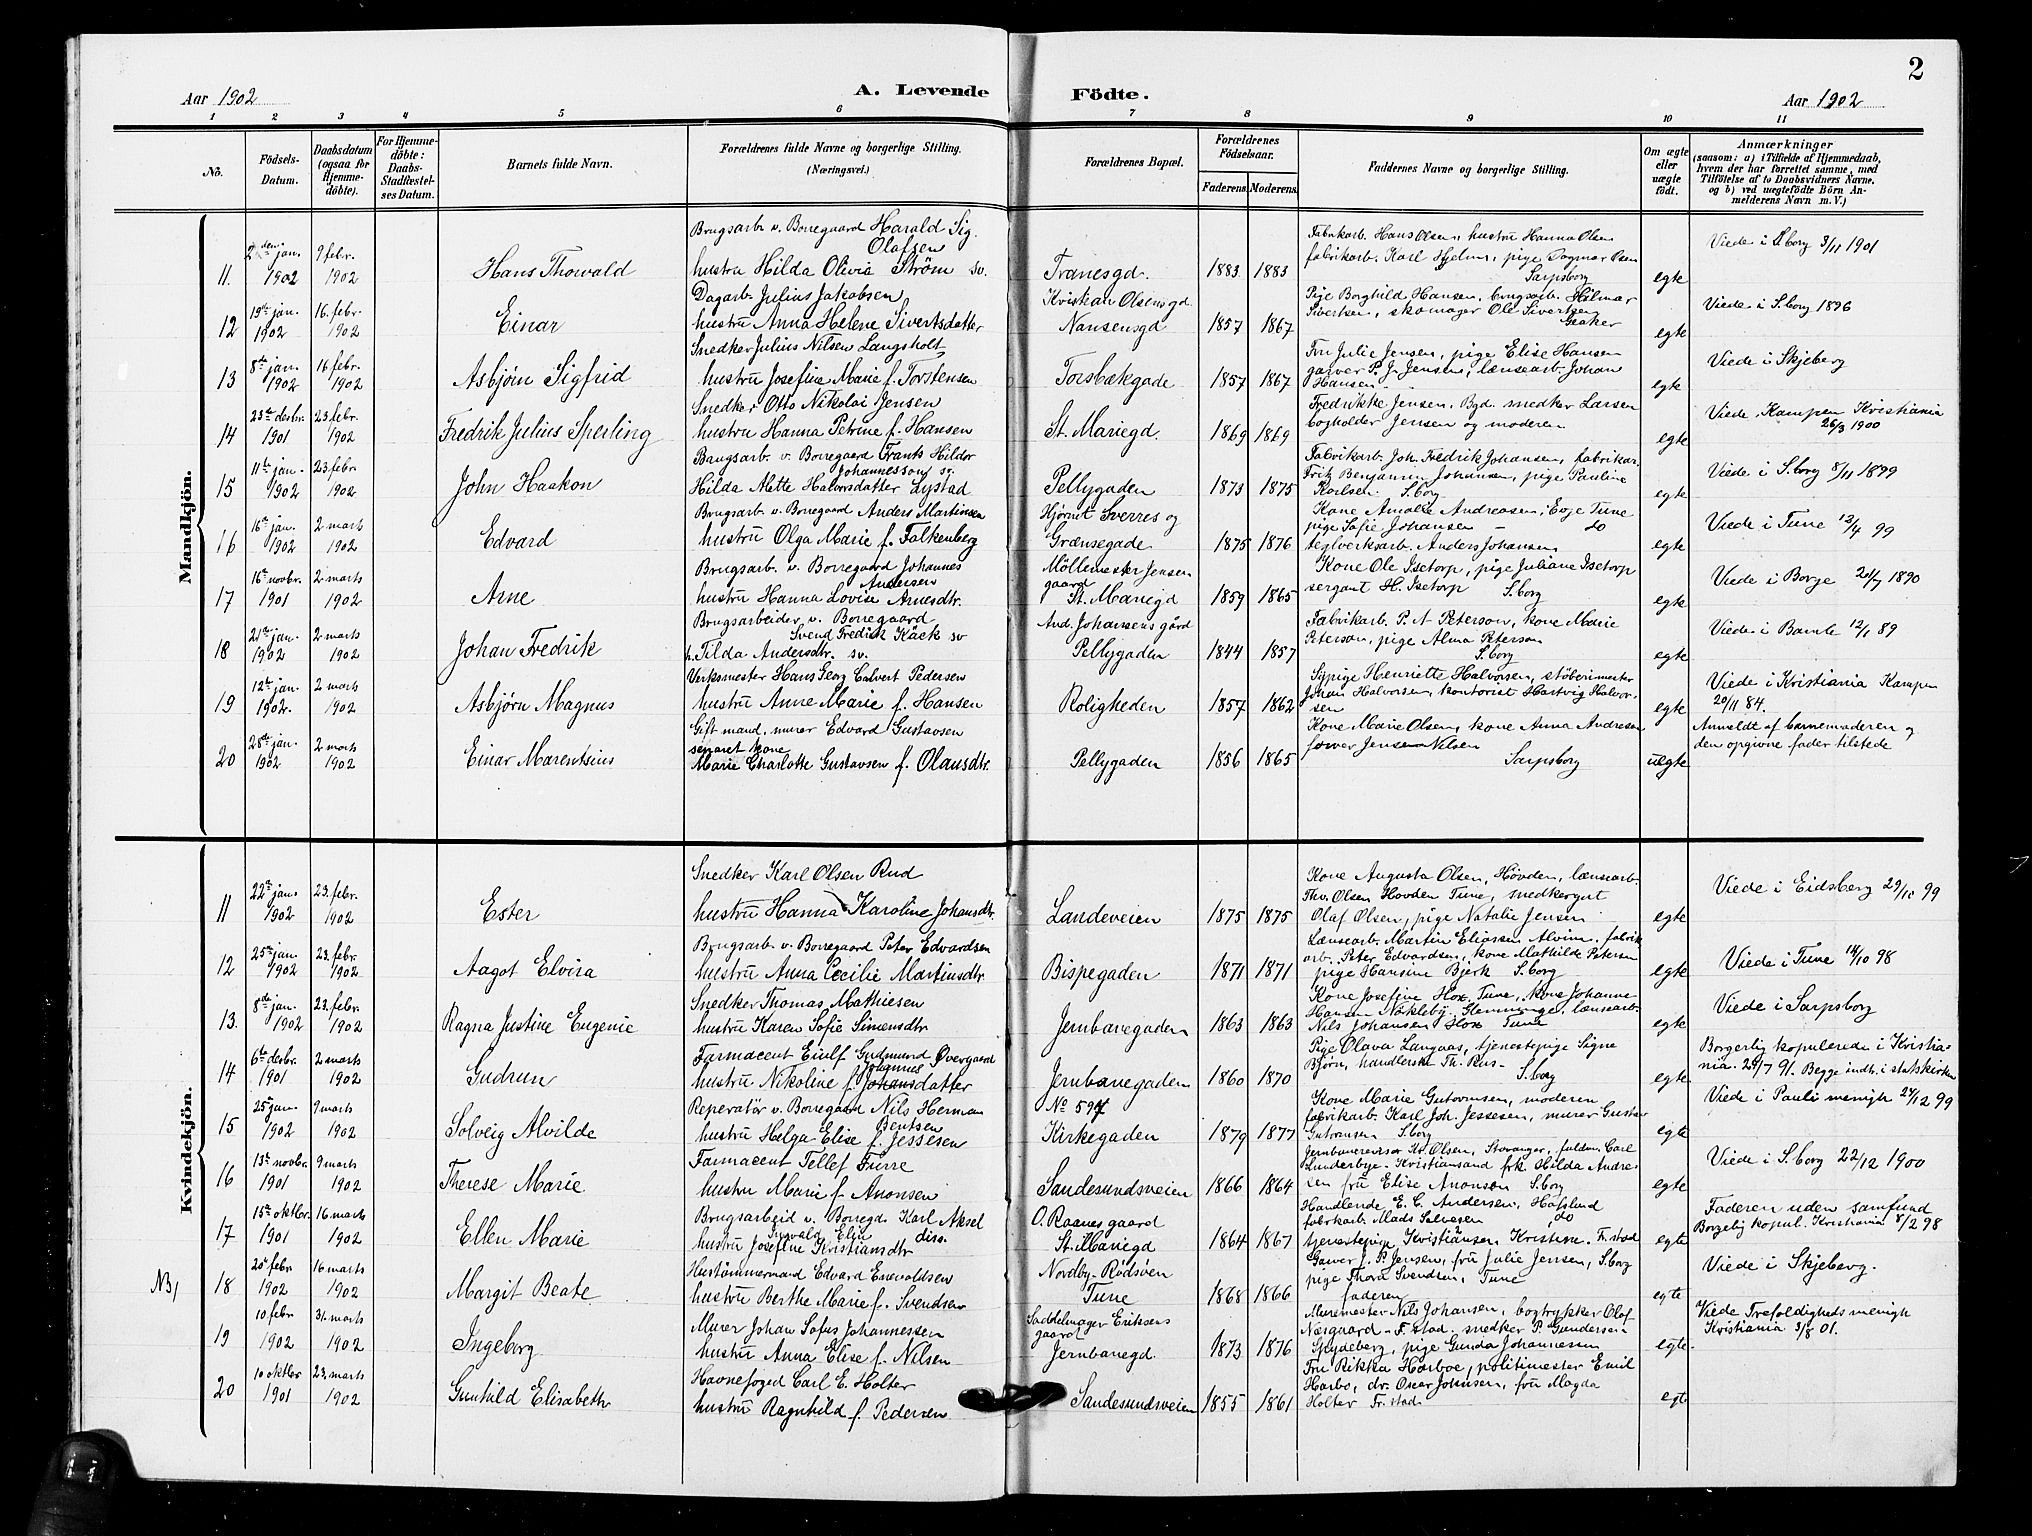 2
Aar 1902
A. Levende Födte.
Aar 1902
1 2 3 4 5 6 7 8 9 10 11
No.
Födsels-Datum.
Daabsdatum (ogsaa for Hjemme-döbte).
For Hjemme-döbte: Daabs-Stadfæstel-ses Datum.
Barnets fulde Navn.
Forældrenes fulde Navne og borgerlige Stilling. (Næringsvei.)
Forældrenes Bopæl.
Forældrenes Födselsaar.
Faderens. Moderens.
Faddernes Navne og borgerlige Stilling.
Om ægte eller uægte födt.
Anmærkninger
(saasom: a) i Tilfælde af Hjemmedaab, hvem der har forrettet samme, med Tilföielse af to Daabsvidners Navne, og b) ved uægtefödte Börn An-melderens Navn m. V.)
Mandkjön.
11. jan. 1902 9 febr. 1902 Hans Thorvald
Brugsarb. v. Borregaard Harald Sig. Olafsen
hustru Hilda Olivia Ström sv.
Tranesgd. 1883 1883
Fabrikarb. Hans Olsen, hustru Hanna Olsen
fabrikarb. Karl Hjelm, pige Dagmar
Sarpsborg
egte
Viede i S.borg 3/11 1901
12 19de jan. 1902 16. febr. 1902 Einar
Dagarb. Julius Jakobsen
hustru Anna Helene Sivertsdatter
Kristian Olsens gd.
Nansensgd 1857 1867
Pige Borghild Hansen, brugsarb. Hilmar
Sivertsen, skomager Ole Sivertsen
egte
Viede i S.borg 1896
13 8de jan. 1902 16 febr. 1902 Asbjörn Sigfrid
Snedker Julius Nilsen Langsholt
hustru Josefine Marie f. Torstensen
Torsbækgade 1857 1867
Fru Julie Jensen, pige Elise Hansen
garver P. J. Jensen, lænsearb. Johan
Hansen
egte
Viede i Skjeberg
14 23de desbr. 1901 23. febr. 1902 Fredrik Julius Sperling
Snedker Otto Nikolai Jensen
hustru Hanna Petrine f. Hansen
St. Mariegd. 1869 1869
Fredrikke Jensen, Bgd. snedker Larsen
bogholder Jensen og moderen
egte
Viede Kampen Kristiania
26/3 1900
15 11te jan. 1902 23. febr. 1902 John Haakon
Brugsarb. v. Borregaard Frants Hildor
Johannesson sv.
Hilda Alette Halvorsdatter Lystad
Pellygaden 1873 1875
Fabrikarb. Joh. Fredrik Johansen, fabrikar.
Fritz Benjamin Johansen, pige Pauline
Karlsen S.borg
egte
Viede i S.borg 5/11 1899
16 16de jan. 1902 2 marts 1902 Edvard
Brugsarb. v. Borregaard Anders Martinsen
hustru Olga Marie f. Falkenberg
Hjörnet Sverres og
Grænsegade 1875 1876
Kone Amalie Andreasen, Evje Tune
pige Sofie Johansen – do
teglverksarb. Anders Johansen
egte
Viede i Tune 13/4 99
17 16de novbr. 1901 2 marts 1902 Arne
Brugsarb. v. Borregaard Johannes
Andersen
hustru Hanna Lovise Arnesdtr.
Möllemester Jensen
gaard
St. Mariegd 1859 1865
Kone Ole Isetorp, pige Juliane Isetorp
sergant H. Isetorp S.borg
egte
Viede i Borge 1890
18 21de jan. 1902 2 marts 1902 Johan Fredrik
Brugsarbeider v. Borregaard
Svend Fredrik Kack sv
h. Tilda Andersdtr. sv.
And. Johansens gård
Pellygaden 1844 1857
Fabrikarb. P. A Peterson, kone Marie
Peterson, pige Alma Peterson
S.borg
egte
Viede i Bamle 12/1 89
19 12te jan. 1902. 2 marts 1902 Asbjörn Magnus
Verksmester Hans Georg Calvert Pedersen
hustru Anne Marie f. Hansen
Roligheden 1857 1862
Sypige Henriette Halvorsen, stöberimester
Johan Halvorsen, kontorist Hartvig Halvor-
sen
egte
Viede i Kristiania Kampen
20/11 84.
20 28de jan. 1902 2 marts 1902 Einar Marentsius
Gift mand, murer Edvard Gustavsen
separet kone
Marie Charlotte Gustavsen f. Olausdtr.
Pellygaden 1856 1865
Kone Marie Olsen, kone Anna Andresen
farver Jensen Nilsen
Sarpsborg
uegte
Anmeldt af barnemoderen og
den opgivne fader tilstede
Kvindekjön.
11 22de jan. 1902 23. febr. 1902 Ester
Snedker Karl Olsen Rud
hustru Hanna Karoline Johansdtr.
Landeveien 1875 1875
Kone Augusta Olsen, Hovden, lænsearb.
Thv. Olsen Hovden Tune, snedkergut
Olaf Olsen, pige Natalie Jensen
egte
Viede i Eidsberg 99
12 25de jan. 1902 23. febr. 1902 Aagot Elvira
Brugsarb. v. Borregaard Peter Edvardsen
hustru Anna Cecilie Martinsdtr.
Bispegaden 1871 1871
Lænsearb. Martin Eliassen Alvim, fabrik
arb. Peter Edvardsen, kone Mathilde Petersen
pige Hansine Bjerk S.borg
egte
Viede i Tune 14/10 98
13. 8de jan. 1902 23. febr. 1902 Ragna Justine Eugenie
Snedker Thomas Mathiesen
hustru Karen Sofie Simensdtr
Jernbanegaden 1863 1863
Kone Josefine Hox, Tune, kone Johanne
Hansen Nökleby, Glemminge, lænsearb.
Nils Johansen Hox Tune
egte
Viede i Sarpsborg
14 6te desbr. 1901 2 marts 1902 Gudrun
Farmacent Eiulf Gudmund Övergaard
Johannes
hustru Nikoline f. Johansdatter
Jernbanegaden 1860 1870
Pige Olava Langaas, tjenestepige Signe
Björn, handlerske Th. Rus- S.borg
egte
Borgerlig kopulerede i Kristia-
nia. 29/7 91. Begge indh. i statskirken
15 25de jan. 1902 9 marts 1902 Solveig Alvilde
Reperatör v. Borregaard Nils Herman
Bentsen
hustru Helga Elise f. Jessesen
No 597
Kirkegaden 1879 1877
Kone Marie Gutormsen, moderen
fabrikarb. Karl Joh. Jessesen, murer Gustav
Gutormsen S.borg
egte
Viede i Pauli menigh 99
16 13de novbr. 1901 9 marts 1902 Therese Marie
Farmacent Tellef Furre
hustru Marie f. Anonsen
Sandesundsveien 1866 1864
Jernbanerevisor Kr. Olsen, Stavanger, fuldm. Carl
Lunderbye, Kristiansand frk Hilda Andre-
sen fru Elise Anonsen S.borg
egte
Viede i S.borg 22/12 1900
17 15de oktbr. 1901 16 marts 1902 Ellen Marie
Brugsarbeid v. Borregd. Karl Aksel
Ingvald Elin diss.
hustru Josefine Kristiansdtr
O. Raanes gaard
St. Mariegd 1864 1867
Handlende E. C. Andersen, Hafslund
fabrkarb. Mads Salvesen do
tjenestepige Kristiansen Kristine F.stad
egte
Faderen uden samfund
Borgelig kopul. Kristiania 8/2 98
NB, 18 20de febr. 1902 16 marts 1902 Margit Beate
Hustömmermand Edvard Enevoldsen
hustru Berthe Marie f. Svendsen
Nordby-Rödsven
Tune 1868 1866
Garver J. P. Jensen, fru Julie Jensen, S.borg
pige Thora Svendsen, Tune
faderen
egte
Viede i Skjeberg.
19 10 febr. 1902 31. marts 1902 Ingeborg
Murer Johan Sofus Johannessen
hustru Anna Elise f. Nilsen
Saddelmager Eriksens
gaard
Jernbanegd. 1873 1876
Murmester Nils Johansen, bogtrykker Olaf
Næsgaard - F.stad. snedker P. Gundersen
Spydeberg, pige Gunda Johannesen
egte
Viede Trefoldigheds menigh
Kristiania 3/8 01.
20 10 oktbr 1901 23. marts 1902 Gunhild Elisabeth
Havnefoged Carl E. Holter
hustru Ragnhild f. Pedersen
Sandesundsveien 1855 1861
Fru Rikka Harboe, politimester Emil
Harbo, dr. Oscar Johnsen, frü Magda
Holter Fr.stad
egte